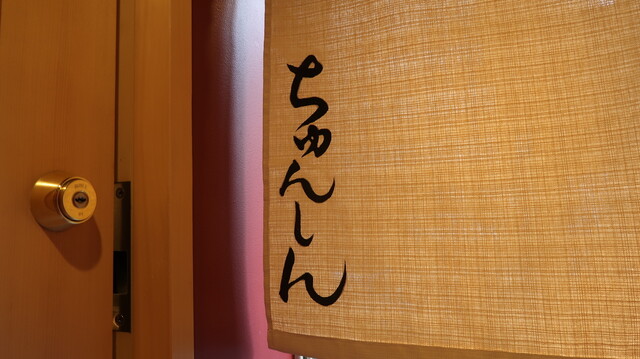 ちゅんしん